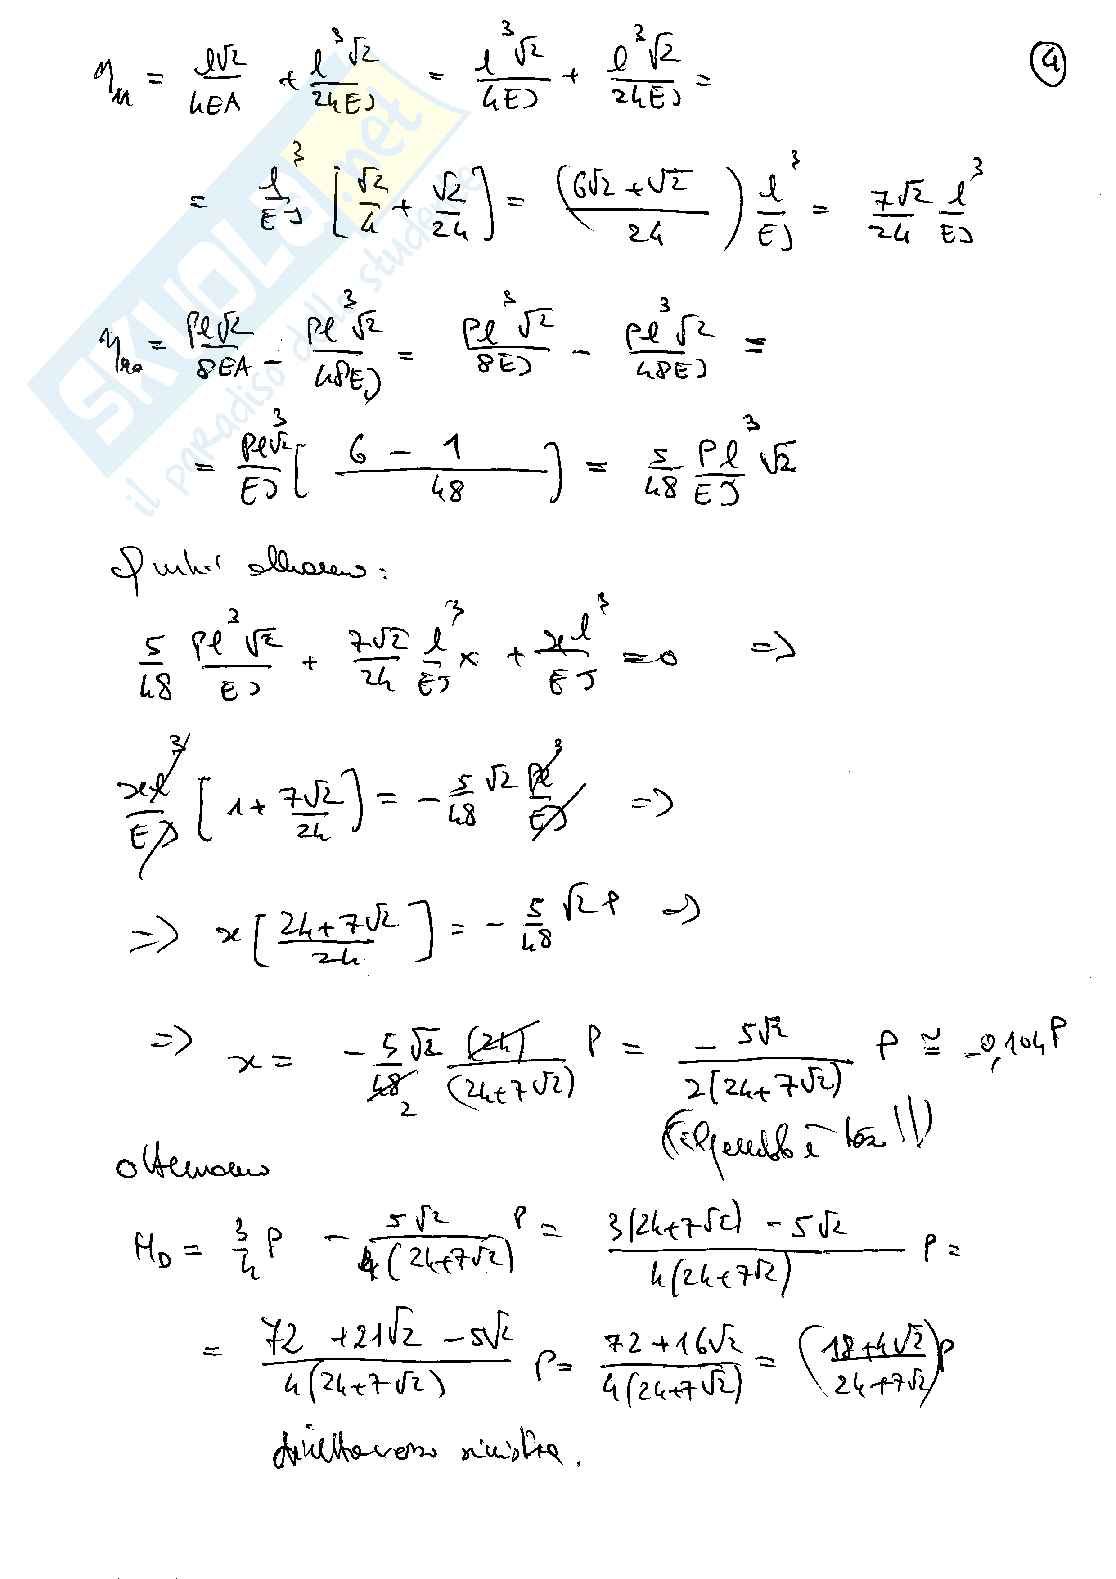 4
η₁₁ = l√2/4EA + l³√2/24EJ = l³√2/4EJ + l³√2/24EJ =
= l³/EJ [√2/4 + √2/24] = (6√2+√2/24) l³/EJ = 7√2/24 l³/EJ
η₁₀ = Pl√2/8EA - Pl³√2/48EJ = Pl³√2/8EJ - Pl³√2/48EJ =
= Pl³√2/EJ [6 - 1/48] = 5/48 Pl³/EJ √2
Quindi abbiamo:
5/48 Pl³√2/EJ + 7√2/24 l³/EJ x + xl³/EJ = 0 =>
xl³/EJ [1 + 7√2/24] = - 5/48 √2 Pl³/EJ =>
=> x [24+7√2/24] = - 5/48 √2 P =>
=> x = - 5√2/48 2 (24)/(24+7√2) P = - 5√2/2(24+7√2) P ≅ -0,104P
è
otteniamo
H_D = 3/4 P - 5√2/4(24+7√2) P = 3(24+7√2) - 5√2/4(24+7√2) P =
= 72 + 21√2 - 5√2/4(24+7√2) P = 72+16√2/4(24+7√2) = (18+4√2/24+7√2)P
diretta verso sinistra.
SKUOLA.net
il paradiso dello studente